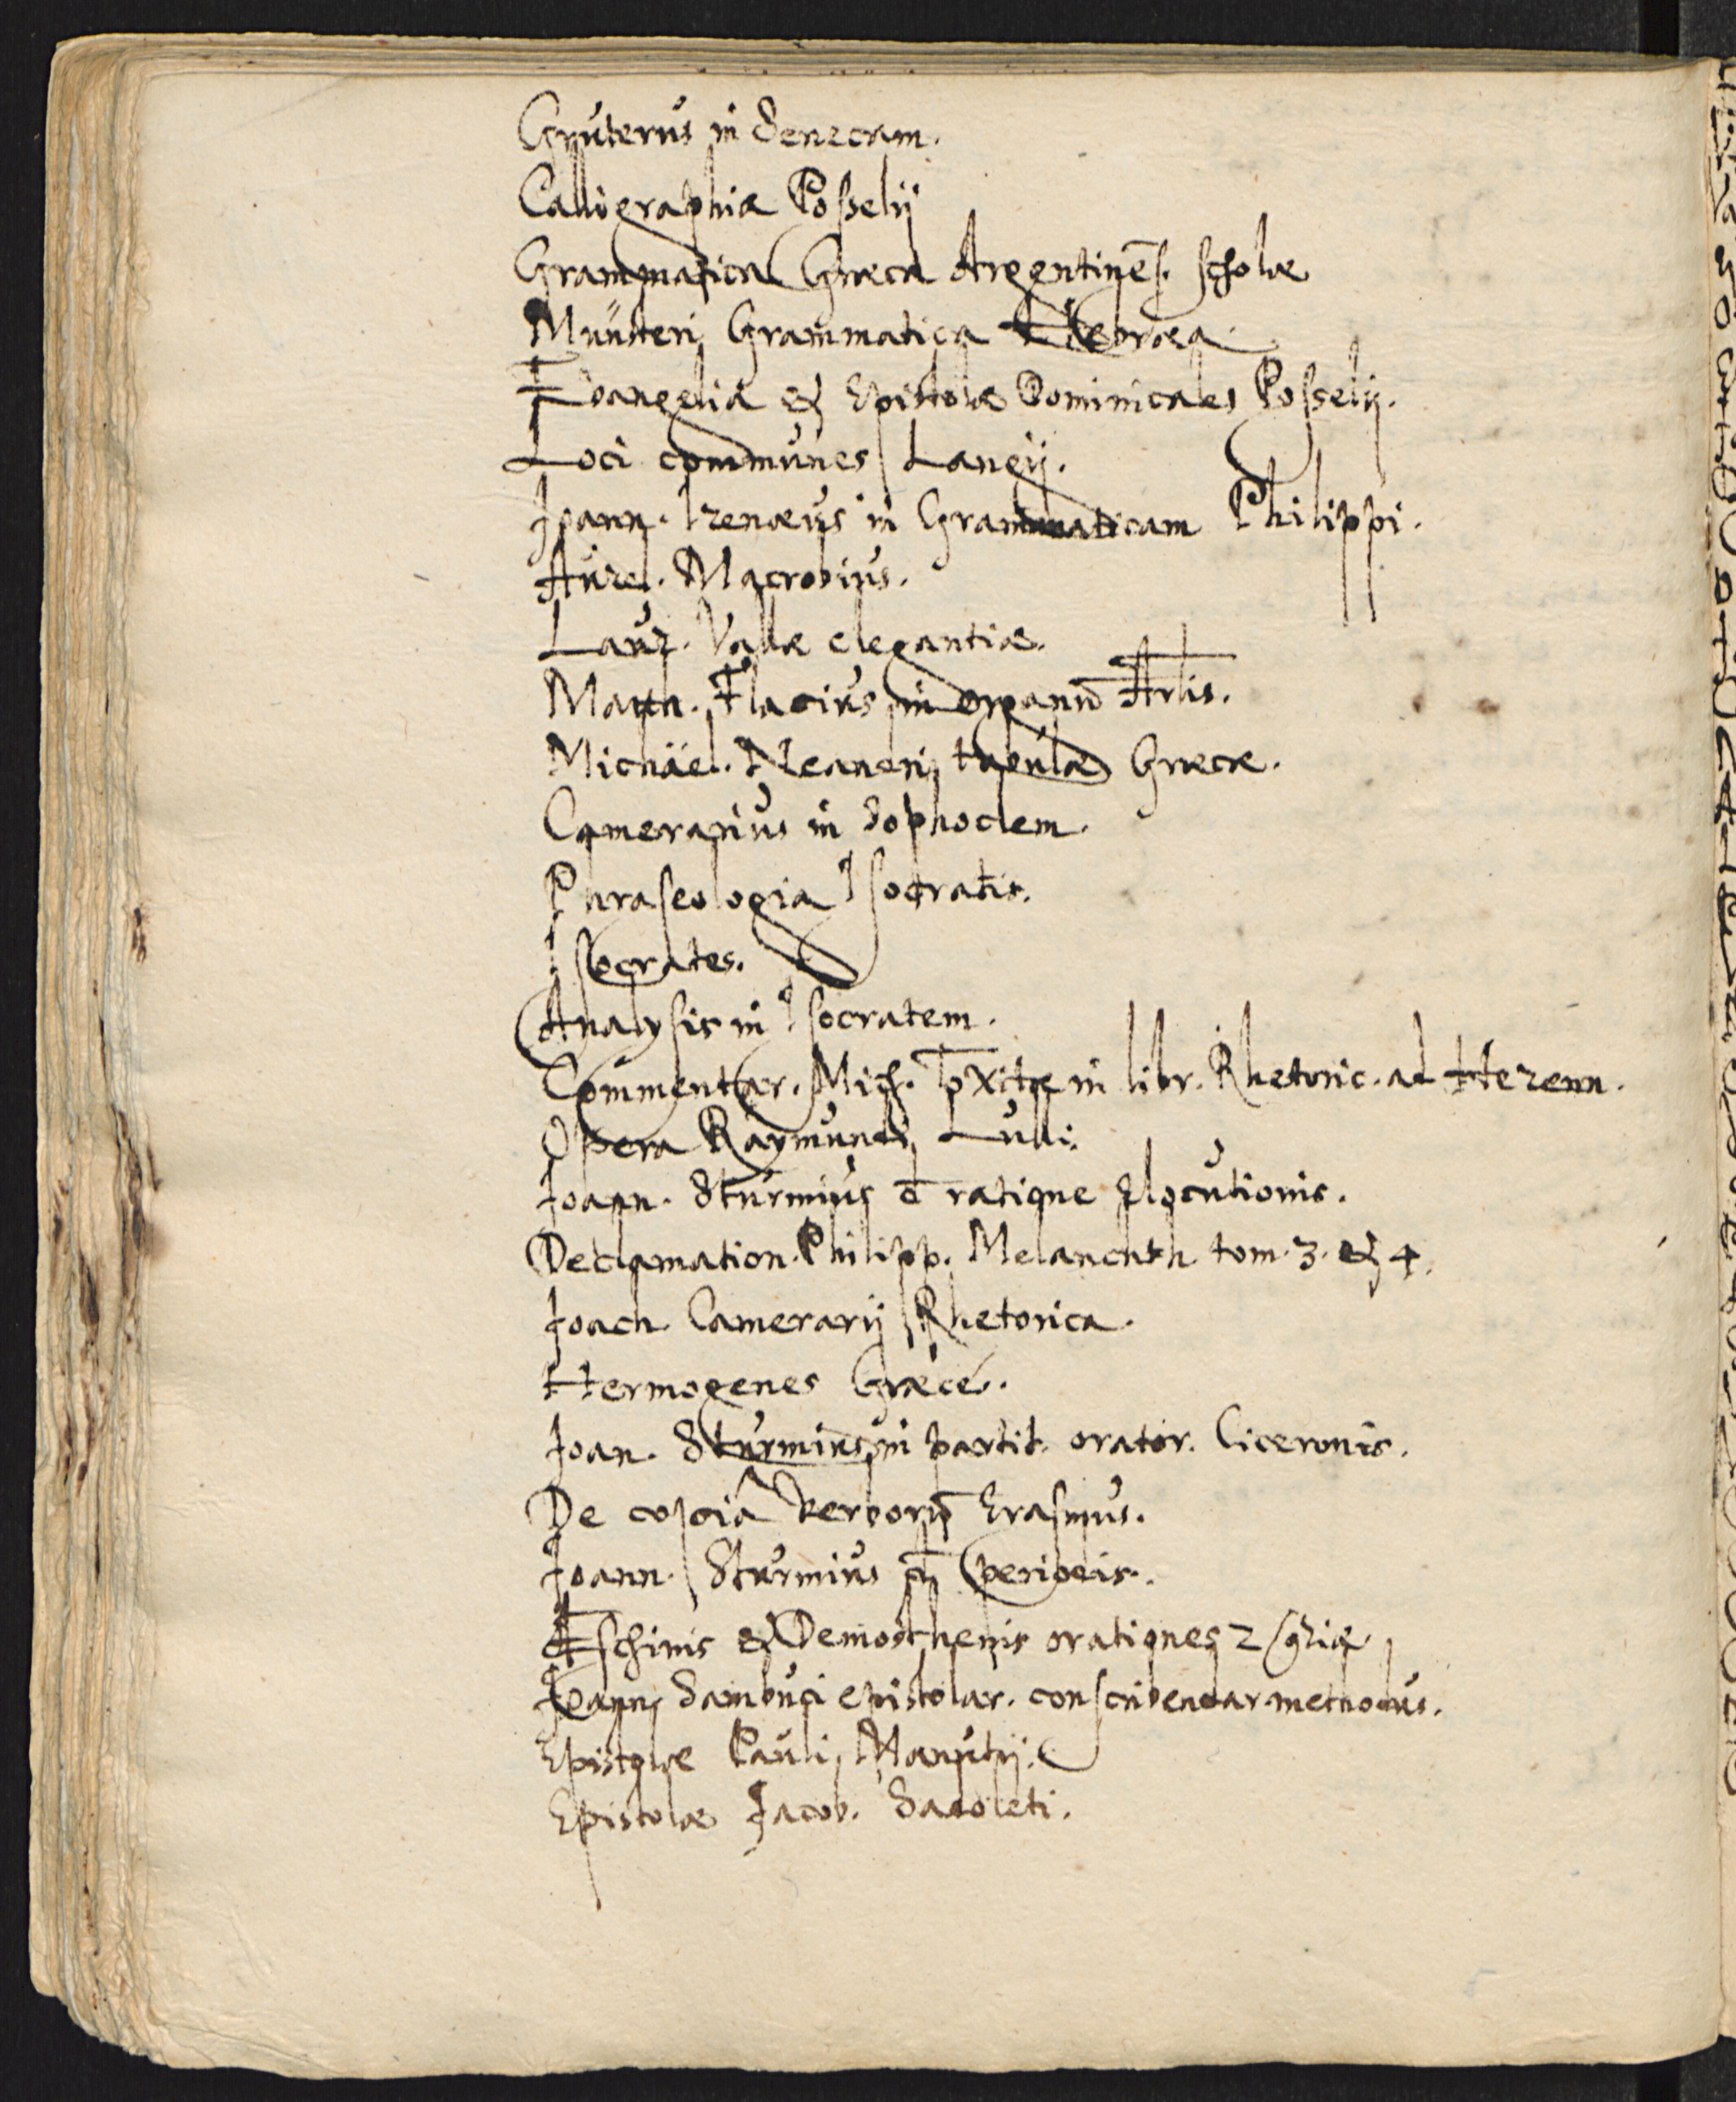 Gruterus in Senecam.
Calligraphia Posselij
Grammatica Græca Argentinēs. scholæ
Munsteri Grammatica Hebræa.
Evangelia & Epistolæ Dominicales Posselij.
Loci communes Langij.
Joann. Irenæus in Grammaticam Philippi.
Aurel. Macrobius.
Laur. Vallæ elegantiæ.
Matth. Flacius in organū Arlis.
Michäel. Neandri tabulæ Græcæ.
Camerarius in Sophoclem.
Phraseologia Isocratis.
Isocrates.
Analysis in Isocratem.
Commentar. Mich. Toxitæ in libr. Rhetoric. ad Herenn.
Opera Raymundi Lulli.
Joann. Sturmius d̄ ratione Elocutionis.
Declamation. Philipp. Melanchth tom. 3. & 4.
Joach Camerarij Rhetorica.
Hermogenes Græcè.
Joan. Sturmius in partit. orator. Ciceronis.
De copiâ verborū Erasmus.
Joann. Sturmius periodis.
Æschinis & Demosthenis orationes
Joann Sambuci epistolar. conscribendar. methodus.
Epistolæ Pauli Manutij.
Epistolæ Jacob. Sadoleti.